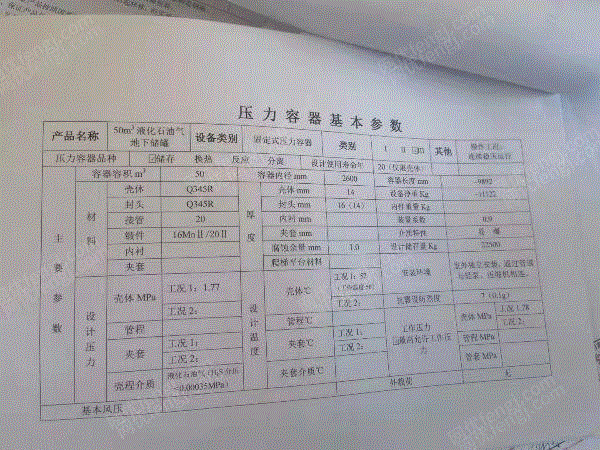 压力容器基本参数
产品名称 50m³液化石油气地下储罐 设备类别 固定式压力容器 类别 I II ☑III 其他 操作工况: 连续稳压运行
压力容器品种 ☑储存 换热 反应 分离 设计使用寿命年 20(仅限壳体)
容器容积 m³ 50 容器内径 mm 2600 容器长度 mm ~9892
主要参数 材料 壳体 Q345R 厚度 壳体 mm 14 设备净重 Kg ~11122
封头 Q345R 封头 mm 16(14) 内件重量 Kg
接管 20 内衬 mm 装量系数 0.9
锻件 16MnⅡ/20Ⅱ 夹套 mm 介质特性 易爆
内衬 腐蚀余量 mm 1.0 设计储存量 Kg 22500
夹套 爬梯平台材料 安装环境
设计压力 壳体 MPa 工况 1: 1.77 设计温度 壳体℃ 工况 1: 50
工况 2: 工况 2: 抗震设防烈度 7(0.1g)
管程 管程℃ 工作压力 壳体 MPa 工况 1.78
夹套 工况 1: 夹套℃ 工况 1: ☑最高允许工作压力 工况 2:
工况 2: 工况 2: 管程 MPa
壳程介质 液化石油气(H₂S 分压<0.00035MPa) 夹套介质℃ 管套 MPa
基本风压 外载荷 无